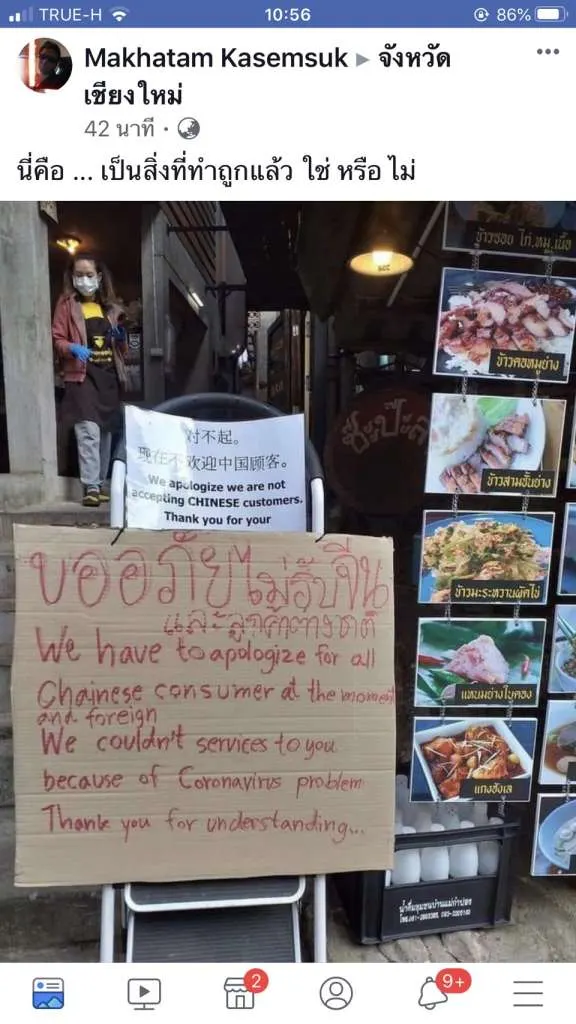 TRUE-H
10:56
86%
Makhatam Kasemsuk ▸ จังหวัด
เชียงใหม่
42 นาที ·
นี่คือ ... เป็นสิ่งที่ทำถูกแล้ว ใช่ หรือ ไม่
对不起。
现在不欢迎中国顾客。
We apologize we are not
accepting CHINESE customers.
Thank you for your
ขออภัยไม่รับจีน
และลูกค้าต่างชาติ
We have to apologize for all
Chainese consumer at the moment
and foreign
We couldn't services to you
because of Coronavirus problem
Thank you for understanding...
ข้าวซอย ไก่,หมู,เนื้อ
ข้าวคอหมูย่าง
ข้าวสามชั้นย่าง
ข้าวมะระหวานผัดไข่
แหนมย่างใบตอง
แกงฮังเล
2
9+